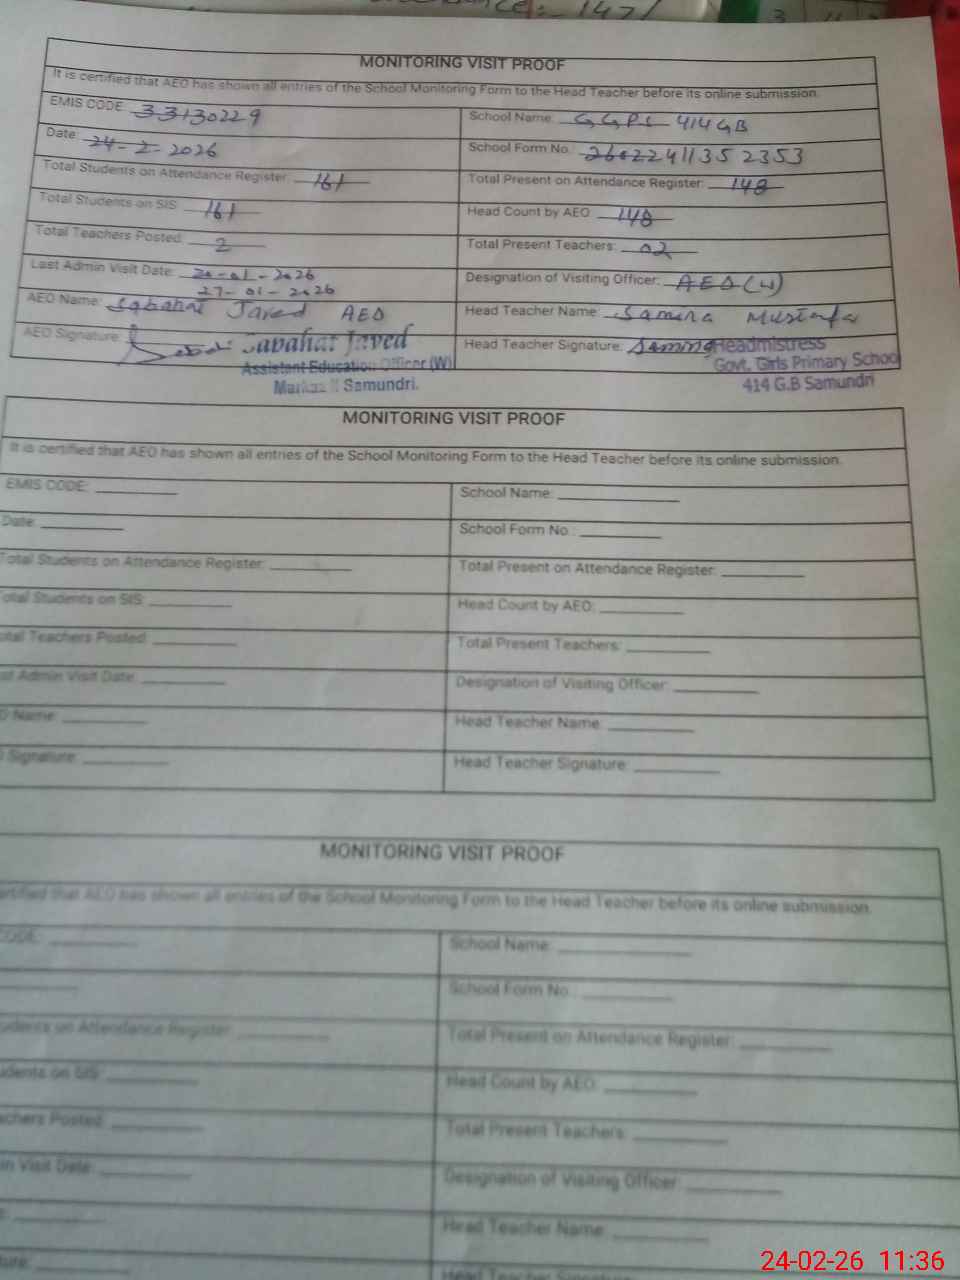 MONITORING VISIT PROOF
It is certified that AEO has shown all entries of the School Monitoring Form to the Head Teacher before its online submission.
EMIS CODE 33130229
School Name: GGPS 414 GB
Date: 24-2-2026
School Form No. 2602241135 2353
Total Students on Attendance Register: 161
Total Present on Attendance Register: 148
Total Students on SIS: 161
Head Count by AEO 148
Total Teachers Posted: 2
Total Present Teachers: 02
Last Admin Visit Date: 20-01-2026
27-01-2026
Designation of Visiting Officer: AEO (W)
AEO Name: Sabahat Javed AEO
Head Teacher Name: Samina Mustafa
AEO Signature:
Sabahat Javed
Assistant Education Officer (W)
Markaz Samundri.
Head Teacher Signature: Samina
Headmistress
Govt. Girls Primary School
414 G.B Samundri
MONITORING VISIT PROOF
It is certified that AEO has shown all entries of the School Monitoring Form to the Head Teacher before its online submission.
EMIS CODE:
School Name:
Date:
School Form No.:
Total Students on Attendance Register:
Total Present on Attendance Register:
Total Students on SIS:
Head Count by AEO:
otal Teachers Posted:
Total Present Teachers:
st Admin Visit Date:
Designation of Visiting Officer:
O Name:
Head Teacher Name:
Signature:
Head Teacher Signature:
MONITORING VISIT PROOF
ertified that AEO has shown all entries of the School Monitoring Form to the Head Teacher before its online submission.
CODE:
School Name:
School Form No.:
udents on Attendance Register:
Total Present on Attendance Register:
udents on SIS:
Head Count by AEO:
achers Posted:
Total Present Teachers:
in Visit Date:
Designation of Visiting Officer:
Head Teacher Name:
ture:
Head Teacher Signature:
24-02-26 11:36